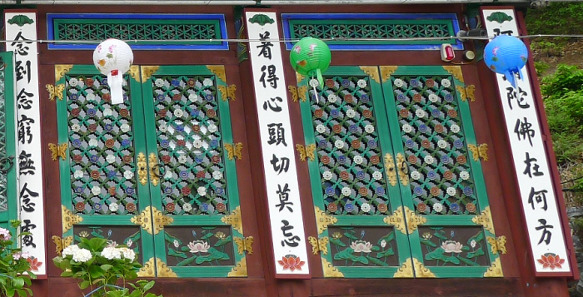 阿陀佛在何方
着得心頭切莫忘
念到念窮無念處